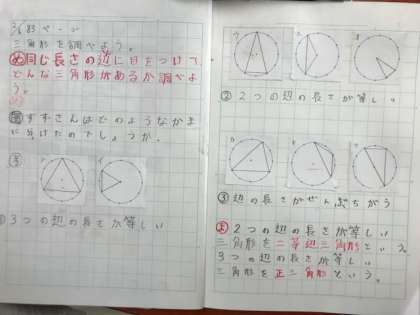 三角形を調べよう。
め 同じ長さの辺に目をつけて、
どんな三角形があるか調べよ
う。
問 すずさんはどのようなかま
に分けたのでしょうか。
考
① 3つの辺の長さが等しい
② 2つの辺の長さが等しい
③ 辺の長さがぜんぶちがう
ま 2つの辺の長さが等しい
三角形を二等辺三角形という。
3つの辺の長さが等しい
三角形を正三角形という。